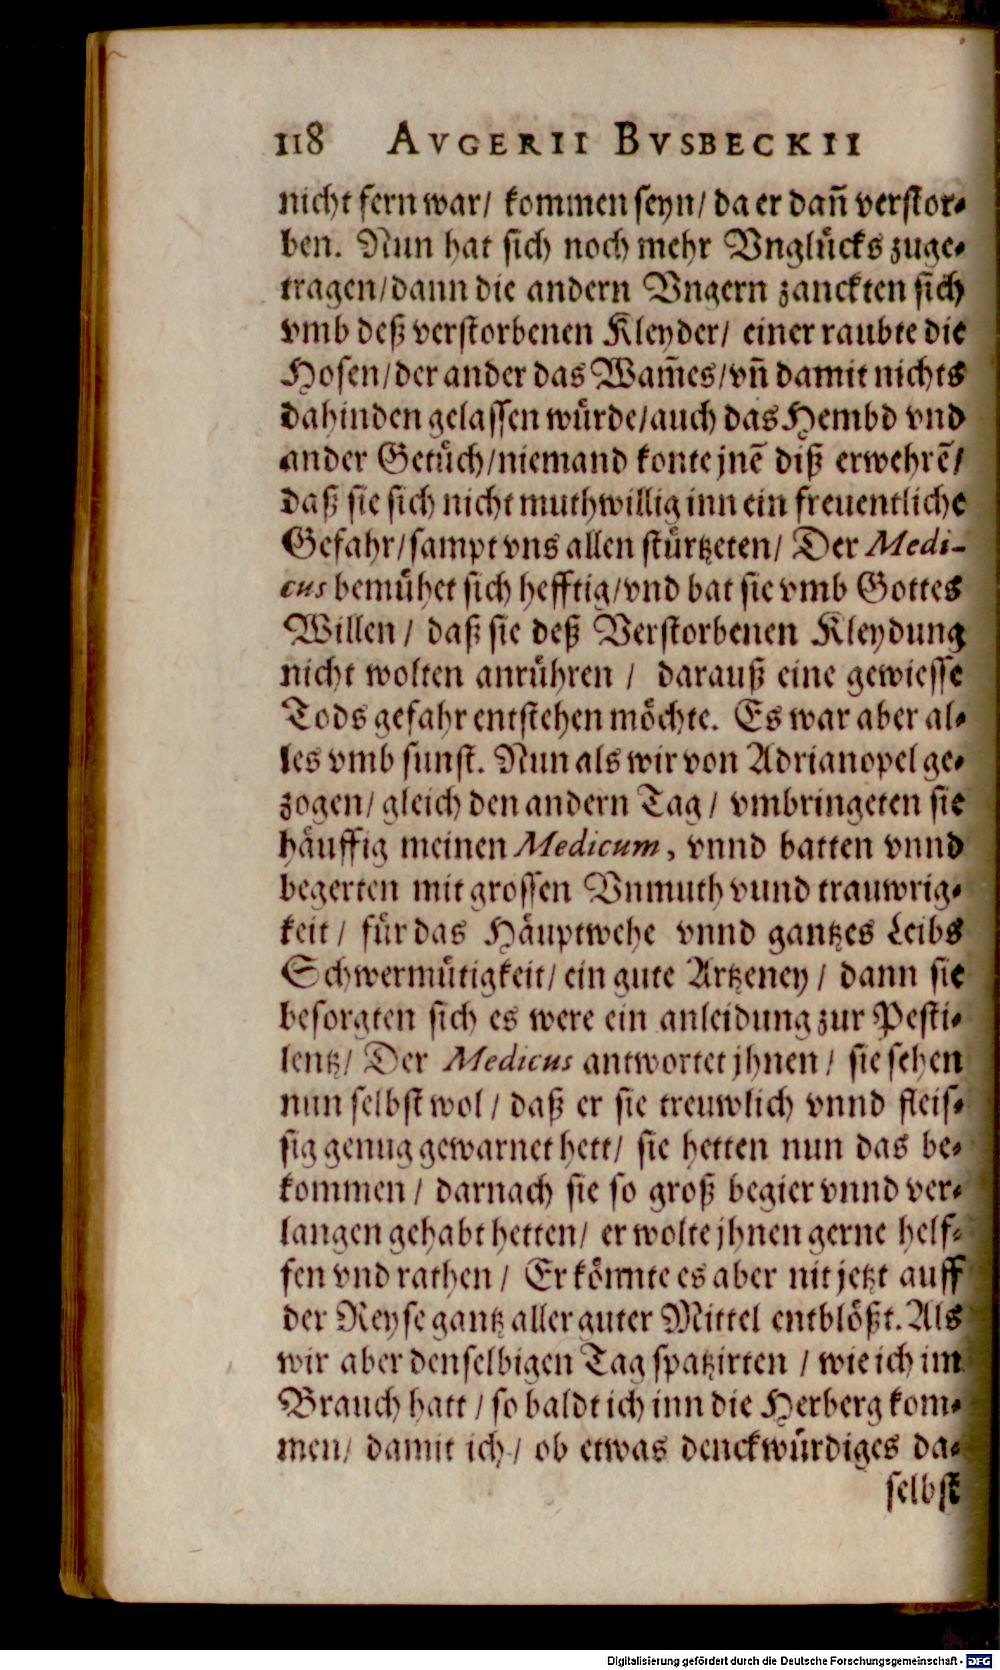 118 AVGERII BVSBECKII
nicht fern war/ kommen seyn/ da er dañ verstor-
ben. Nun hat sich noch mehr Vnglücks zuge-
tragen/ dann die andern Vngern zanckten sich
vmb deß verstorbenen Kleyder/ einer raubte die
Hosen/ der ander das Wam̄es/ vñ damit nichts
dahinden gelassen würde/ auch das Hembd vnd
ander Getüch/ niemand konte jnẽ diß erwehrẽ/
daß sie sich nicht muthwillig inn ein freuentliche
Gefahr/ sampt vns allen stürtzeten/ Der Medi-
cus bemühet sich hefftig/ vnd bat sie vmb Gottes
Willen/ daß sie deß Verstorbenen Kleydung
nicht wolten anrühren/ darauß eine gewiesse
Tods gefahr entstehen möchte. Es war aber al-
les vmb sunst. Nun als wir von Adrianopel ge-
zogen/ gleich den andern Tag/ vmbringeten sie
häuffig meinen Medicum, vnnd batten vnnd
begerten mit grossen Vnmuth vund trauwrig-
keit/ für das Häuptwehe vnnd gantzes Leibs
Schwermütigkeit/ ein gute Artzeney/ dann sie
besorgten sich es were ein anleidung zur Pesti-
lentz/ Der Medicus antwortet jhnen/ sie sehen
nun selbst wol/ daß er sie treuwlich vnnd fleis-
sig genug gewarnet hett/ sie hetten nun das be-
kommen/ darnach sie so groß begier vnnd ver-
langen gehabt hetten/ er wolte jhnen gerne helf-
fen vnd rathen/ Er könnte es aber nit jetzt auff
der Reyse gantz aller guter Mittel entblößt. Als
wir aber denselbigen Tag spatzirten/ wie ich im
Brauch hatt/ so baldt ich inn die Herberg kom-
men/ damit ich/ ob etwas denckwürdiges da-
selbst
Digitalisierung gefördert durch die Deutsche Forschungsgemeinschaft - DFG